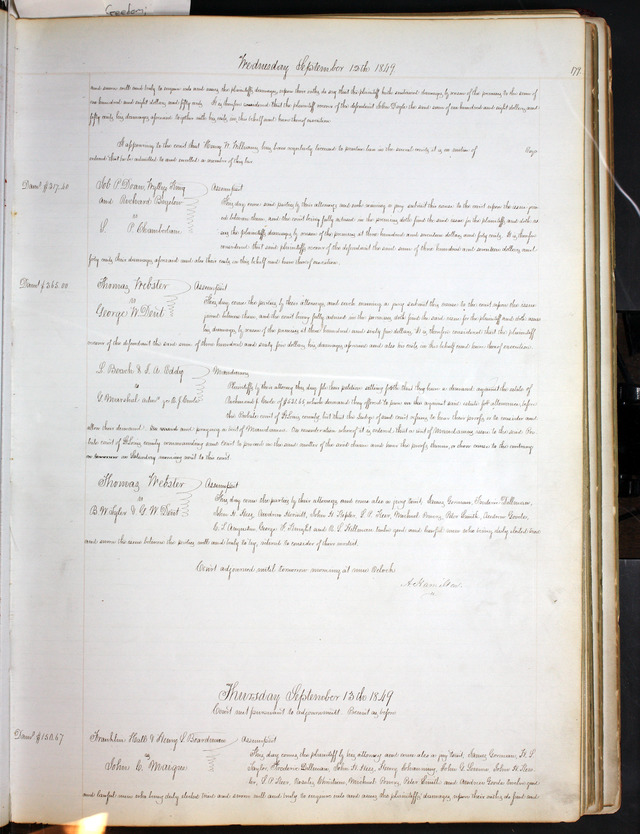 Wednesday September 12th 1849
177
and sworn well and truly to enquire into and assess the plaintiffs damages upon their oaths do say that the plaintiff hath sustained damages by reason of the premises to the sum of
one hundred and eight dollars and fifty cents. It is therefore considered that the plaintiff recover of the defendant John Doyle the said sum of one hundred and eight dollars and
fifty cents his damages aforesaid together with his costs in this behalf and have thereof execution
It appearing to the court that Henry W. Williams has been regularly licensed to practice law in the several courts it is on motion of Esqr
ordered that he be admitted to and enrolled a member of this bar
Dam! $317.40
Job P. Doan, Wylleys King
and Rockard Bigelow
vs
P. Chamberlain
Assumpsit
This day came said parties by their attorneys and each waiving a jury submit this cause to the court upon the issue join-
ed between them, and the court being fully advised in the premises doth find the said issue for the plaintiffs and doth as
sess the plaintiffs damages by reason of the premises at three hundred and seventeen dollars and forty cents. It is therefore
considered that said plaintiffs recover of the defendant the said sum of three hundred and seventeen dollars and
forty cents their damages aforesaid and also their costs in this behalf and have thereof execution.
Dam! $365.00
Thomas Webster
vs
George W. Dent
Assumpsit
This day came the parties by their attorneys and each waiving a jury submit this cause to the court upon the issue
joined between them, and the court being fully advised in the premises doth find the said issue for the plaintiff and doth assess
his damages by reason of the premises at three hundred and sixty five dollars. It is therefore considered that the plaintiff
recover of the defendant the said sum of three hundred and sixty five dollars his damages aforesaid and also his costs in this behalf and have thereof execution.
L Bench & I. A. Eddy
vs
G. Marshal
Mandamus
Plaintiffs by their attorney this day file their petition setting forth that they have a demand against the estate of
which demand they offered to prove up
the Probate court of county but that the Judge of said court refuses to hear their proofs or to consider and
allow their demand. and praying a writ of Mandamus. On consideration whereof it is ordered that a writ of Mandamus issue to the said Pro-
bate court of county commanding said Court to proceed in the said matter of the said demand and hear the proofs therein, or show cause to the contrary
on Saturday morning next to this court
Thomas Webster
vs
B. W. Tyler & G W Dent
Assumpsit
This day came the parties by their attorneys and come also a jury towit, James Gorman, Frederic Dillman,
John H. Hees, Andrew Howell, John H. Kepler, I. P. Hees, Michael Power, Peter Smith, Andrew Goode,
C. T. Augustin, George S. Knight and A. L. Holloman twelve good and lawful men who being duly elected tried
and sworn the issue between the parties well and truly to try, retired to consider of their verdict.
Court adjourned until tomorrow morning at nine oclock
A. Hamilton
Thursday September 13th 1849
Court met pursuant to adjournment. Present as before
Dam! $158.67
Franklin Hall & Henry L. Boardman
vs
John C. Maigne
Assumpsit
This day comes the plaintiff by his attorney and come also a jury towit, James Gorman, H. L.
Taylor, Frederic Dillman, John H. Hees, Henry Schwarmanz, John G. John H. Kep-
ler, I. P. Hees, Michael Power, Peter Smith and Andrew Goode twelve good
and lawful men who being duly elected tried and sworn well and truly to enquire into and assess the plaintiffs damages, upon their oaths do find and